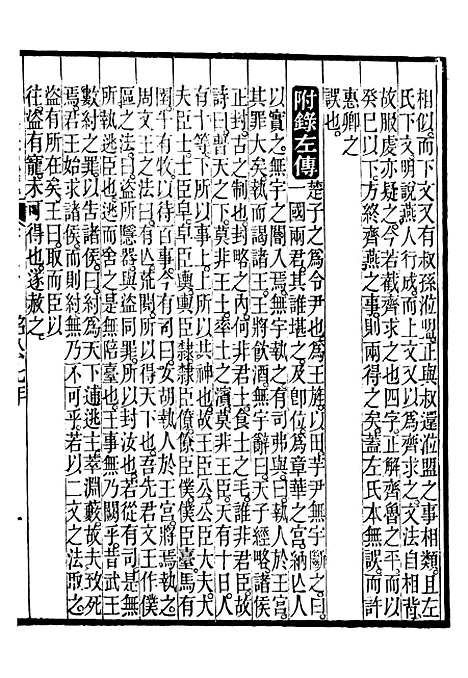 相似而下文又有叔孫涖盟正與叔還涖盟之事相類且左
氏下文明說燕人行成而上文又以為齊求之文法自相背
故服虔亦疑之今若截齊求之也四字正解齊魯之平而以
癸巳以下方終齊燕之事則兩得之矣蓋左氏本無誤而許
惠卿之
誤也
附錄左傳 楚子之為令尹也為王旌以田芋尹無宇斷之曰
一國兩君其誰堪之及卽位為章華之宮納亡人
以實之無宇之閽入焉無宇執之有司弗與曰執人於王宮
其罪大矣執而謁諸王王將飲酒無宇辭曰天子經略諸侯
正封古之制也封略之內何非君土食土之毛誰非君臣故
詩曰普天之下莫非王土率土之濱莫非王臣天有十日人
有十等下所以事上上所以共神也故王臣公公臣大夫大
夫臣士士臣皁皁臣輿輿臣隸隸臣僚僚臣僕僕臣臺馬有
圉牛有牧以待百事今有司曰女胡執人於王宮將焉執之
周文王之法曰有亡荒閱所以得天下也吾先君文王作僕
區之法曰盜所隱器與盜同罪所以封汝也若從有司是無
所執逃臣也逃而舍之是無陪臺也王事無乃闕乎昔武王
數紂之罪以告諸侯曰紂為天下逋逃主萃淵藪故夫致死
焉君王始求諸侯而則紂無乃不可乎若以二文之法取之
盜有所在矣王曰取而臣以
往盜有寵未可得也遂赦之